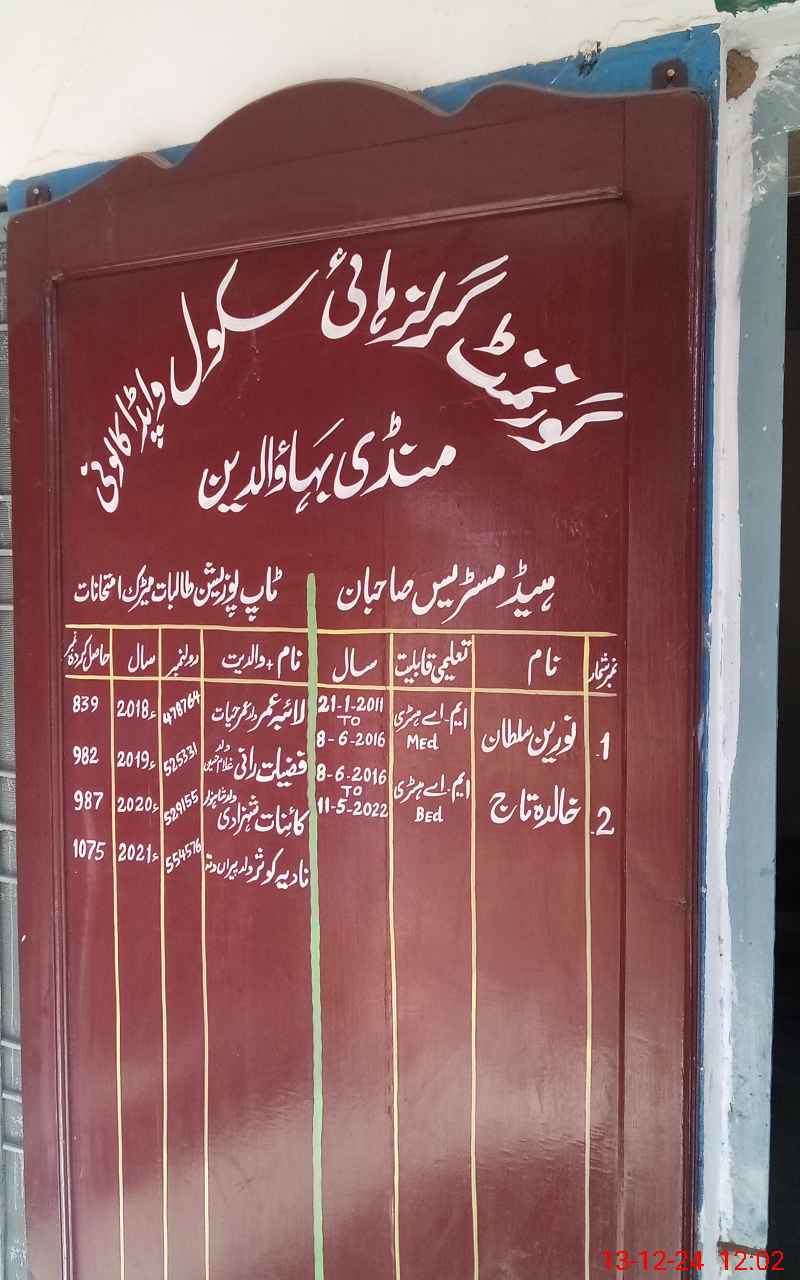 گورنمنٹ گرلز ہائی سکول واپڈا کالونی
منڈی بہاؤالدین
ہیڈ مسٹریس صاحبان
نمبر شمار نام تعلیمی قابلیت سال
1 نورین سلطان ایم۔اے ہسٹری MEd 21-1-2011 TO 8-6-2016
2 خالدہ تاج ایم۔اے ہسٹری BEd 8-6-2016 TO 11-5-2022
ٹاپ پوزیشن طالبات میٹرک امتحانات
نام + ولدیت رولنمبر سال حاصل کردہ نمبر
لائبہ عمر ولد عمر حیات 478764 2018ء 839
فضیلت رانی ولد غلام حسین 525331 2019ء 982
کائنات شہزادی ولد 529155 2020ء 987
نادیہ کوثر ولد پیراں دتہ 554576 2021ء 1075
13-12-24 12:02